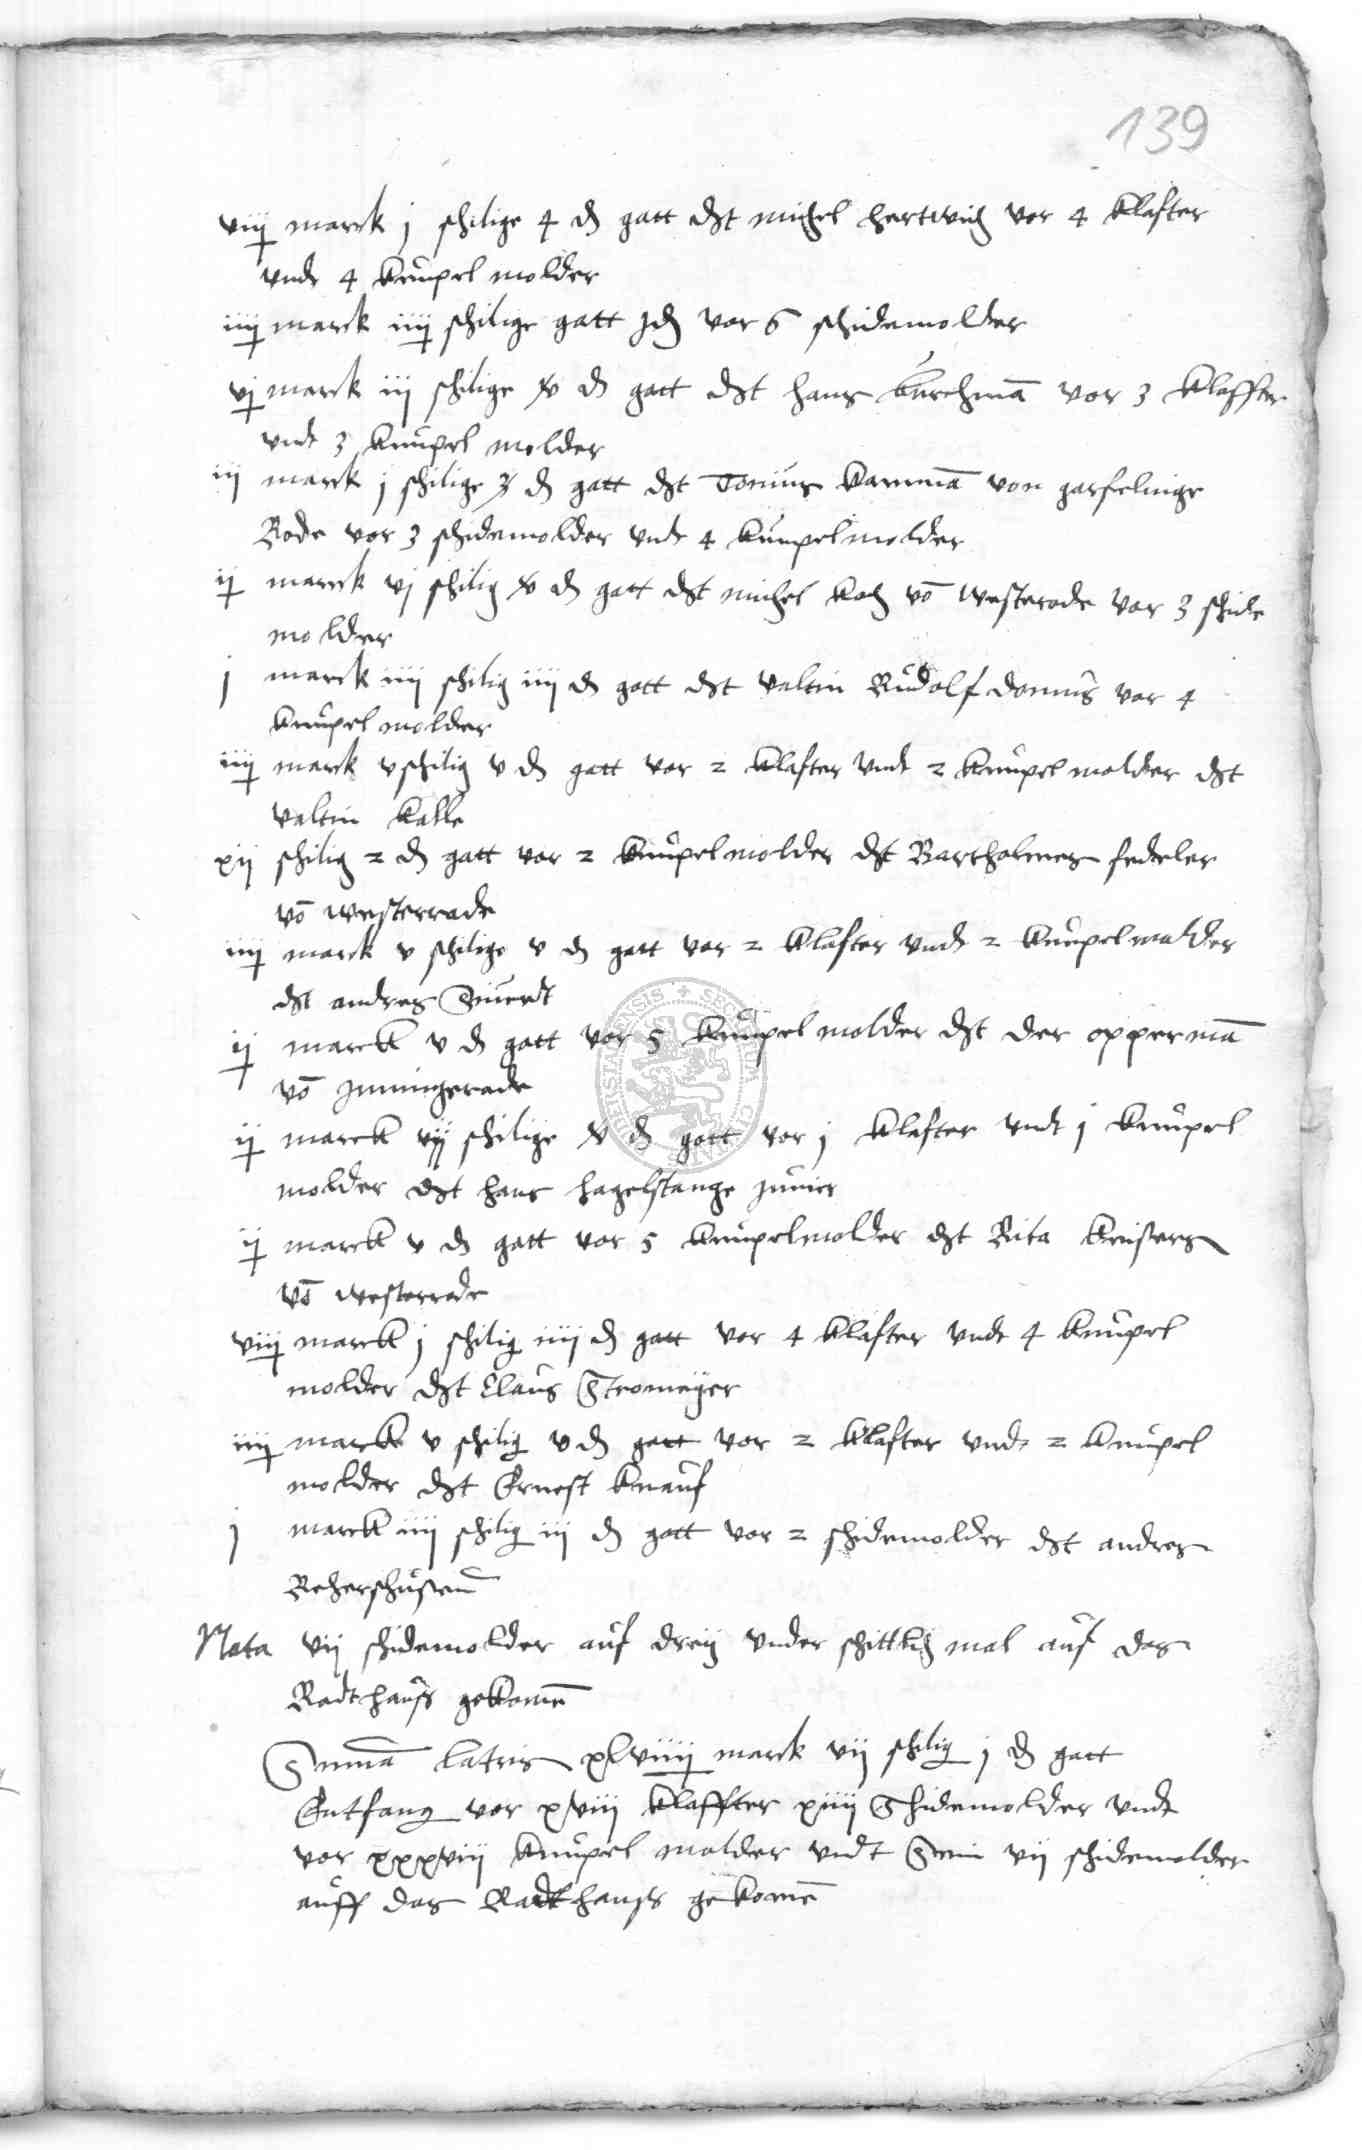 139
viiij marck j schilige 4 d gatt dt michel hertwich vor 4 klafter
vnde 4 knuppel molder
iiij marck iiij schilige gatt Jd vor 6 schidemolder
vj marck iij schilige v d gatt dt hans burchmā vor 3 klaffter
vnde 3 knuppel molder
iij marck j schilige 3 d gatt dt Tonius kammā von garfelinge
Rode vor 3 schidemolder vnde 4 knuppelmolder
ij marck vj schilig v d gatt dt michel koch vō westerode vor 3 schide
molder
j marck iiij schilig iiij d gatt dt valtin Rudolf domus vor 4
knuppel molder
iiij marck v schilig v d gatt vor 2 klafter vnde 2 knuppel molder dt
valtin kalle
xij schilig 2 d gatt vor 2 knuppelmolder dt Bartholmes fedeler
vō westerrade
iiij marck v schilige v d gatt vor 2 klafter vnde 2 knuppelmolder
dt andres
ij marck v d gatt vor 5 knuppel molder dt der oppermā
vō Jmmingerade
ij marck vij schilige v d gatt vor j klafter vnde j knuppel
molder dt hans hagelstange junier
ij marck v d gatt vor 5 knuppelmolder dt Rita
vō westerrode
viiij marck j schilig iiij d gatt vor 4 klafter vnde 4 knuppel
molder dt Claus Stromeyer
iiij marck v schilig v d gatt vor 2 klafter vnde 2 knuppel
molder dt Ernest knauf
j marck iiij schilig iij d gatt vor 2 schidemolder dt andres
Rehershusen
Nota vij schidemolder auf dreij vnder schittlich mal auf das
Radthauss gekomē
Summa latris xlviiij marck vij schilig j d gatt
Entfang vor xviij klaffter xiiij Schidemolder vnde
vor xxxviij knuppel molder vndt Sein vij schidemolder
auff das Radthauss gekomē